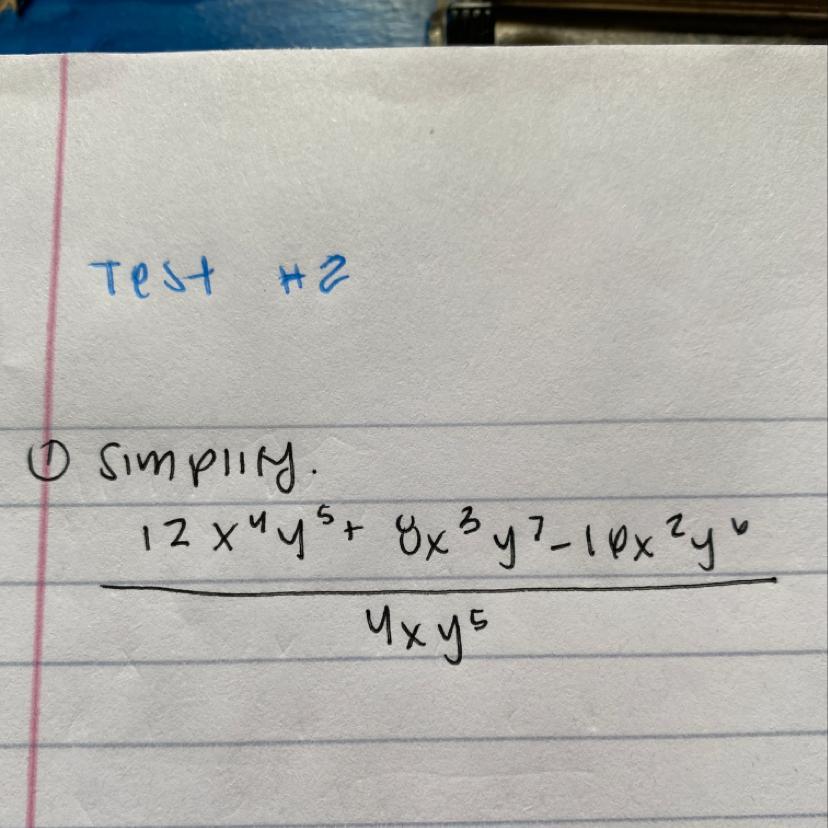 Test #2
① Simplify.
12x⁴y⁵ + 8x³y⁷ - 16x²y⁶
4xy⁵